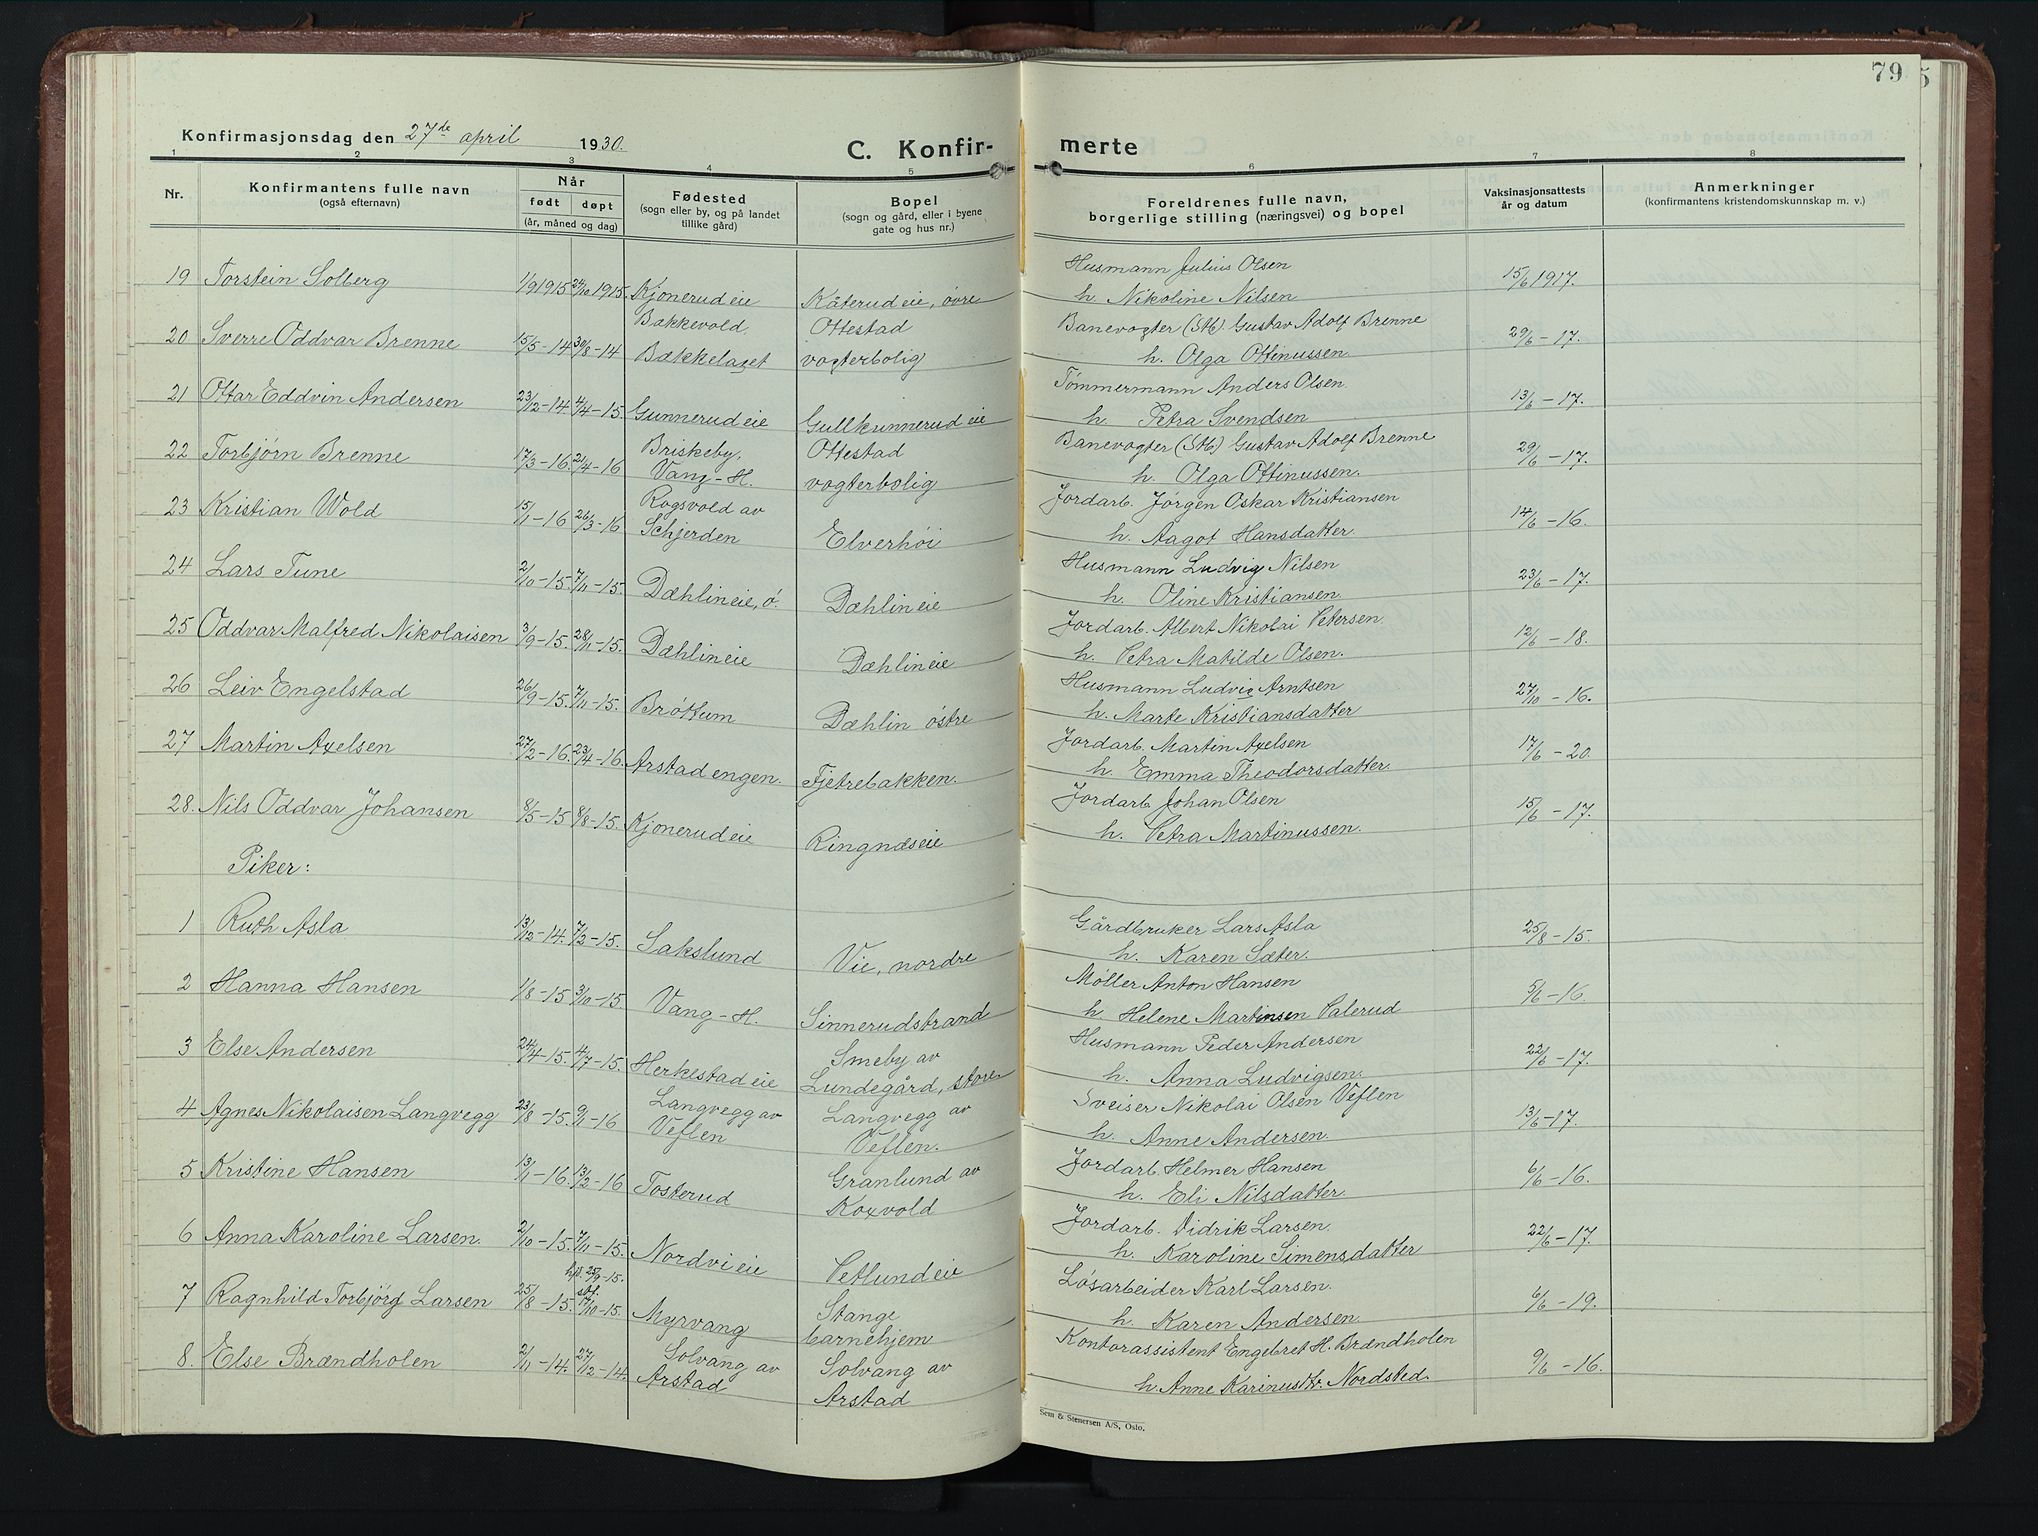 79
Konfirmasjonsdag den 27de april 1930.
C. Konfir-
merte
1 2 3 4 5 6 7 8
Nr.
Konfirmantens fulle navn
(også efternavn)
Når
født døpt
(år, måned og dag)
Fødested
(sogn eller by, og på landet
tillike gård)
Bopel
(sogn og gård, eller i byene
gate og hus nr.)
Foreldrenes fulle navn,
borgerlige stilling (næringsvei) og bopel
Vaksinasjonsattests
år og datum
Anmerkninger
(konfirmantens kristendomskunnskap m. v.)
19 Torstein Solberg 1/9 1915 24/10 1915. Kjonerud eie Kåterud eie, øvre
Husmann Julius Olsen
h. Nikoline Nilsen
15/6 1917.
20 Sverre Oddvar Brenne 15/5-14 30/8-14
Bækkevold,
Bækkelaget
Ottestad
vogterbolig
Banevogter (Stb) Gustav Adolf Brenne
h. Olga Ottinussen.
29/6-17.
21 Ottar Eddvin Andersen 23/12-14. 4/4-15. Gunnerud eie Gullkunnerud eie
Tömmermann Anders Olsen.
h. Petra Svendsen
13/6-17.
22 Torbjørn Brenne 17/3-16. 2/4-16
Briskeby,
Vang-H.
Ottestad
vogterbolig
Banevogter (Stb) Gustav Adolf Brenne
h. Olga Ottinussen.
29/6-17.
23 Kristian Wold 15/1-16 26/3-16
Rogsvold av
Schjerden
Elverhöi
Jordarb. Jørgen Oskar Kristiansen
h. Aagot Hansdatter
14/6-16.
24 Lars Tune 2/10-15. 7/11-15. Dæhlin eie, ö. Dæhlin eie
Husmann Ludvig Nilsen
h. Oline Kristiansen.
23/6-17.
25 Oddvar Malfred Nikolaisen 3/9-15. 28/11-15. Dæhlin eie Dæhlin eie
Jordarb. Albert Nikolai Petersen.
h. Petra Matilde Olsen.
12/6-18.
26 Leiv Engelstad 26/9-15. 7/11-15. Bröttum Dæhlin östre
Husmann Ludvig Arntsen
h. Marte Kristiansdatter
27/10-16.
27 Martin Axelsen 27/2-16. 23/4-16. Arstad engen. Fjetrebakken.
Jordarb. Martin Axelsen
h. Emma Theodorsdatter.
17/6-20.
28. Nils Oddvar Johansen 8/5-15 8/8-15. Kjonerud eie Ringnæs eie
Jordarb. Johan Olsen
h. Petra Martinussen.
15/6-17.
Piker:
1 Ruth Asla 13/12-14. 7/2-15. Sakslund Vie, nordre
Gårdbruker Lars Asla
h. Karen Sæter.
25/8-15.
2 Hanna Hansen 1/8-15 3/10-15 Vang-H. Sinnerudstrand
Möller Anton Hansen
h. Helene Martinsen Palerud
5/6-16.
3 Else Andersen 24/4-15. 4/7-15. Herkestad eie
Smeby av
Lundegård, store
Husmann Peder Andersen
h. Anna Ludvigsen.
22/6-17.
4 Agnes Nikolaisen Langvegg 23/8-15. 9/1-16
Langvegg av
Veflen
Langvegg av
Veflen.
Sveiser Nikolai Olsen Veflen
h. Anne Andersen.
13/6-17.
5 Kristine Hansen 13/1-16. 13/2-16 Tosterud
Granlund av
Koxvold
Jordarb. Helmer Hansen
h. Eli Nilsdatter.
6/6-16.
6 Anna Karoline Larsen. 2/10-15. 7/11-15. Nordvi eie Vetlund eie
Jordarb. Didrik Larsen.
h. Karoline Simensdatter
22/6-17.
7 Ragnhild Torbjörg Larsen 25/8-15. hjd. 25/9-15. stf. 17/10-15. Myrvang
Stange
barnehjem
Lösarbeider Karl Larsen.
h. Karen Andersen.
6/6-19.
8. Else Brændholen 2/11-14. 27/12-14.
Solvang av
Arstad
Solvang av
Arstad
Kontorassistent Engebret H. Brændholen
h. Anne Karinusdtr. Nordsted.
9/6-16.
Sem & Stenersen A/S, Oslo.